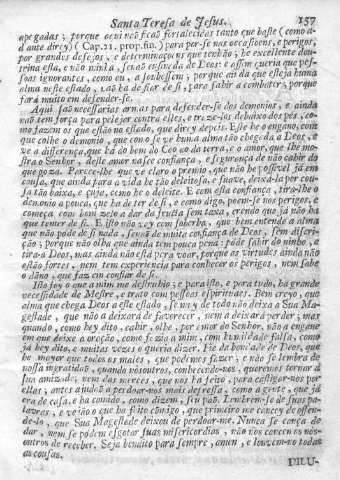 Santa Teresa de Jesus. 157
apegadas; porque aqui não ficão fortalecidas tanto que baste (como a-
d'ante direy) (Cap. 21. prop. fin.) para por-se nas occasioens, e perigos,
por grandes desejos, e determinaçoens que tenhão; he excellente dou-
trina esta, e não minha, senão ensinada de Deos: e assim queria que pes-
soas ignorantes, como eu, a soubessem; porque ainda que esteja huma
alma neste estado, não ha de fiar de si, para sahir a combater; porque
fará muito em defender-se.
Aqui são necessarias armas para defender-se dos demonios, e ainda
não tem força para pelejar contra elles, e traze-los debaixo dos pés, co-
mo fazem os que estão no estado, que direy depois. Este he o engano, com
que colhe o demonio, que como se ve huma alma tão chegada a Deos, e
ve a differença, que ha do bem do Ceo ao da terra, e o amor, que lhe mo-
stra o Senhor, deste amor nasce confiança, e segurança de não cahir do
que goza. Parece-lhe que ve claro o premio, que não he possivel já em
cousa, que ainda para a vida he tão deleitosa, e suave, deixá-la por cou-
sa tão baixa, e çuja, como he o deleite. E com esta confiança, tira-lhe o
demonio a pouca, que ha de ter de si, e como digo, poem-se nos perigos, e
começa com bom zelo a dar da fruita sem taxa, crendo que já não ha
que temer de si. E isto não vay com soberba, que bem entende a alma
que não póde de si nada, senão de muita confiança de Deos, sem discri-
ção; porque não olha que ainda tem pouca pena: póde sahir do ninho, e
tira-a Deos, mas ainda não está pera voar, porque as virtudes ainda não
estão fortes, nem tem experiencia para conhecer os perigos, nem sabe
o dano, que faz em confiar de si.
Isto foy o que a mim me destruhio; e para isto, e para tudo, ha grande
necessidade de Mestre, e trato com pessoas espirituaes. Bem creyo, que
alma que chega Deos a este estado, se muy de todo não deixa a Sua Ma-
gestade, que não a deixará de favorecer, nem a deixará perder; mas
quando, como hey dito, cahir, olhe, por amor do Senhor, não a engane
em que deixe a oração, como fazia a mim, com humildade falsa, como
já hey dito, e muitas vezes o queria dizer. Fie da bondade de Deos, que
he mayor que todos os males, que podemos fazer; e não se lembra de
nossa ingratidão, quando nósoutros, conhecendo-nos, queremos tornar á
sua amizade, nem das mercés, que nos ha feito, para castigar-nos por
ellas; antes ajudão a perdoar-nos mais depressa, como a gente, que já
era de casa, e ha comido, como dizem, seu pão. Lembrem-se de suas pa-
lavras, e vejão o que ha feito comigo, que primeiro me cancey de offen-
de-lo, que Sua Magestade deixou de perdoar-me. Nunca se cança de
dar, nem se pódem esgotar suas misericordias, não nos cancemos nós-
outros de receber. Seja bendito para sempre, amen, e louvem-no todas
as cousas.
DILU-